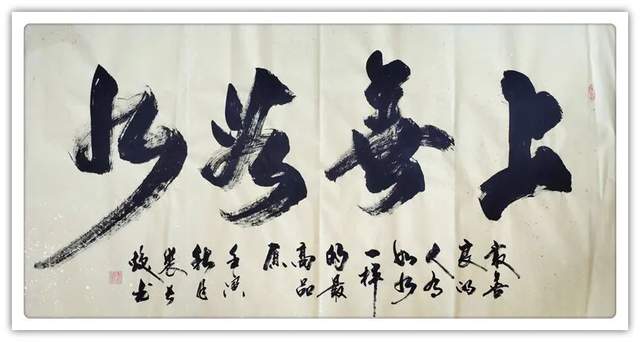 上善若水
最善
良的
人为
如水
一样
的最
高品
壬寅
秋月
书